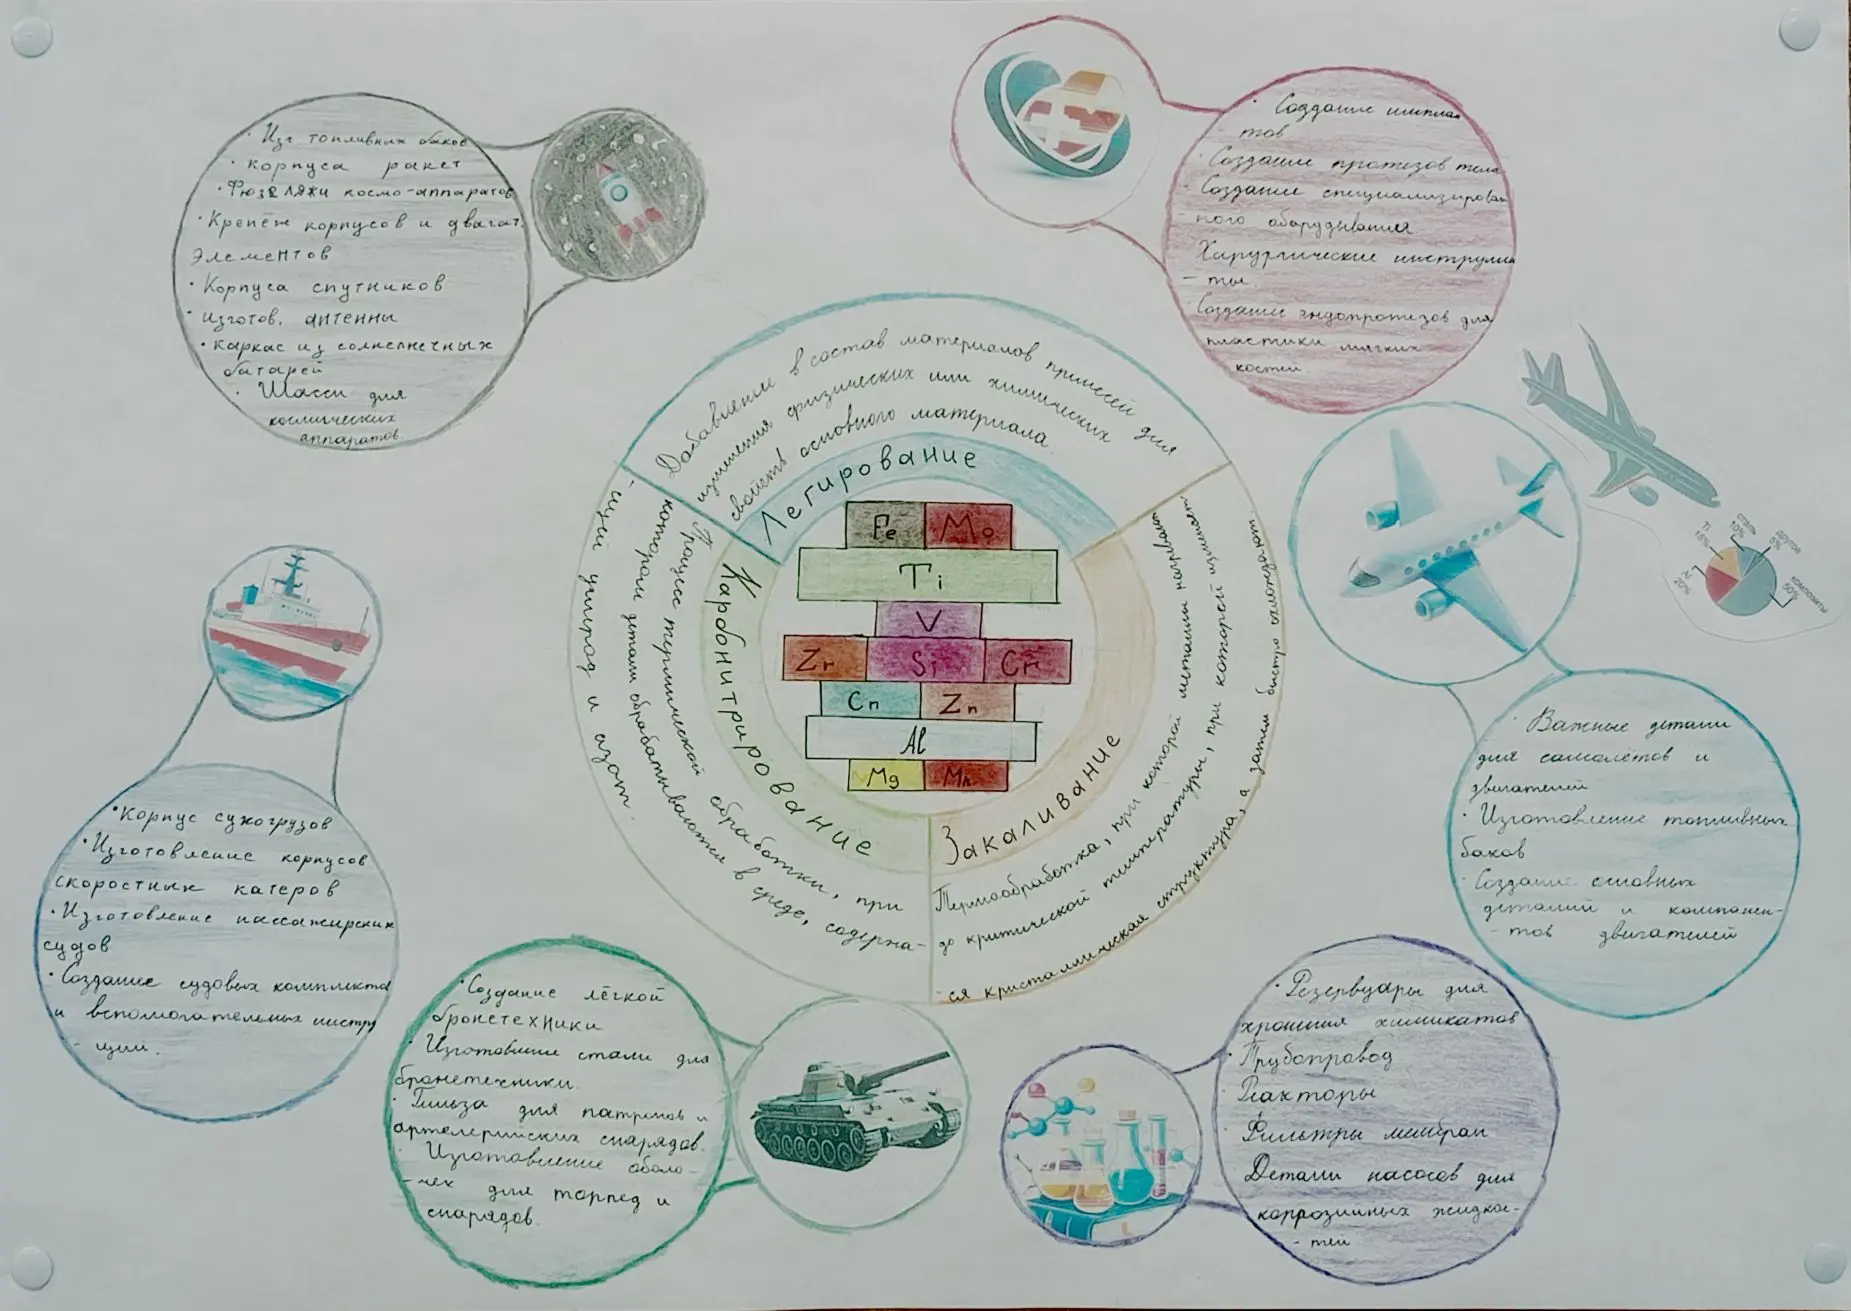 · Изг топливных баков
· Корпуса ракет
· Фюзеляжи космо-аппаратов
· Крепёж корпусов и двагат.
элементов
· Корпуса спутников
· изготов. антенны
· каркас из солнечнечных
батарей
· Шасси для
космических
аппаратов.
· Создание импла
- тов
· Создание протезов тела
· Создание специализирован
- ного оборудывания.
Хирургические инструмен
- ты.
Создание эндопротезов для
пластики мягких
костей.
Добавление в состав материалов примесей для
изменения физических или химических
свойств основного материала.
Легирование
Карбонитрирование
Процесс термической обработки, при
котором детали обрабатываются в среде, содержа-
-щей углерод и азот.
Закаливание
Термообработка, при которой металлы нагревают
до критической температуры, при которой изменяет
-ся кристаллическая структура, а затем быстро охлаждают.
Fe Mo
Ti
V
Zr Si Cr
Cn Zn
Al
Mg Mn
Ti
15%
сталь
10%
другое
5%
Al
20%
композиты
50%
· Важные детали
для самолётов и
двигателей
· Изготовление топливных
баков
· Создание основных
деталий и компонен-
- тов двигателей
· Корпус сухогрузов
· Изготовление корпусов
скоростных катеров
· Изготовление пассажирских
судов
· Создание судовых комплекто
и вспомогательных инстру
- ций.
· Создание лёгкой
бронетехники
· Изготовление стали для
бронетехники.
· Гильза для патронов и
артелерийских снарядов.
· Изготовление оболо-
-чек для торпед и
снарядов.
· Резервуары для
хранения химикатов
· Трубопровод
· Реакторы
· Фильтры мембран
Детали насосов для
коррозийных жидкос-
- тей